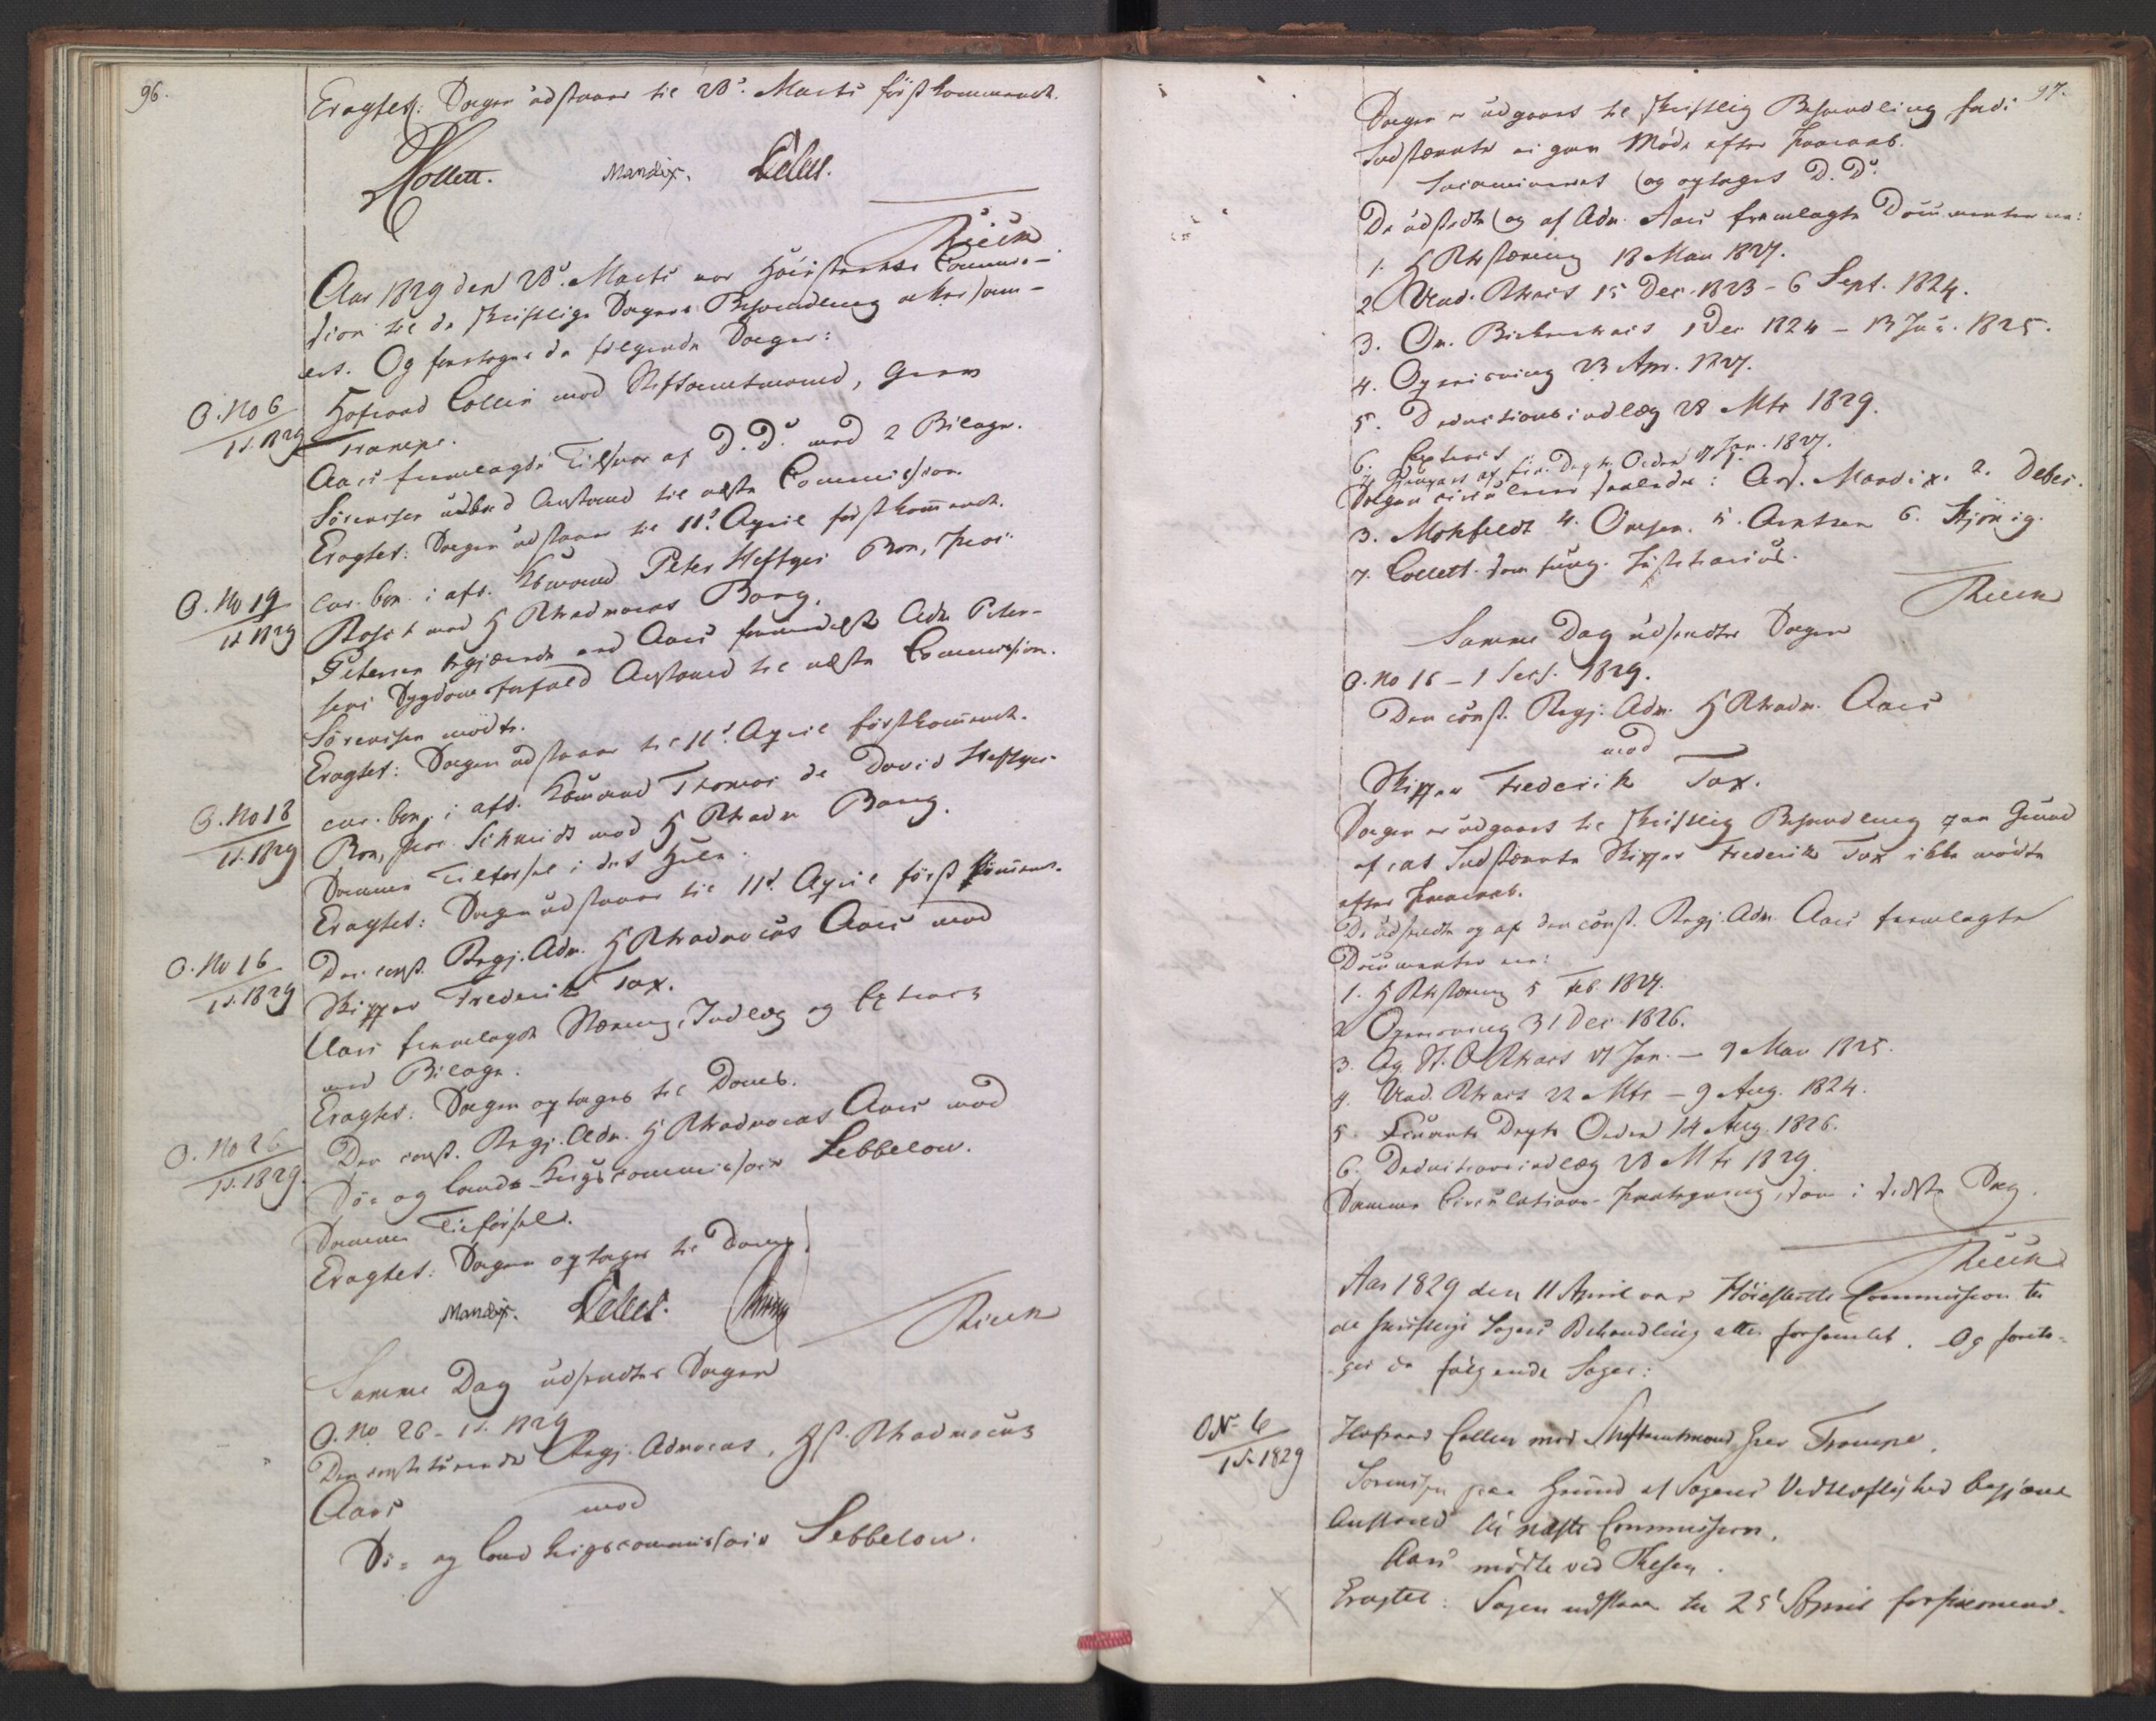 96.
Eragtet: Sagen udstaaer til 28de Marts förstkommende.
Collett. Mandix. Debes.
Rieck
Aar 1829 den 28de Marts var Höiesterets Commis-
sion til de skriftlige Sagers Behandling atter sam-
let. Og foretoges da fölgende Sager:
O. No 6
1 S. 1829
Hofraad Collin mod Stiftamtmand, Grev
Trampe.
Aars fremlagde Tilsvar af D. D. med 2 Bilage.
Sörensen udbad Anstand til næste Commission.
Eragtet: Sagen udstaaer til 11te April förstkommende.
O. No 19
1 S. 1829
cur. bon. i afd. Kbmand Peter Heftyes Bon, Proc.
Rosch mod H Rtsadvocat Bang.
Petersen begjærede ved Aars formedelst Adv. Peter-
sens Sygdomsforfald Anstand til næste Commission.
Sörensen mödte.
Eragtet: Sagen udstaaer til 11te April förstkommende.
O. No 18
1 S. 1829
cur. bon. i afd. Kbmand Thomas de David Heftyes
Bon, Proc. Schmidt mod H Rtsadv Bang.
Samme Tilförsel i det Hele.
Eragtet: Sagen udstaaer til 11te April förstkommende.
O. No 16
1 S. 1829
Den const. Regj. Adv. H Rtsadvocat Aars mod
Skipper Frederik Tax.
Aars fremlagde Stævning, Indlæg og Extract
med Bilage.
Eragtet: Sagen optages til Doms.
O. No 26
1 S. 1829.
Den const. Regj. Adv. H Rtsadvocat Aars mod
Sö- og Land-Krigscommissair Sebbelow.
Samme Tilförsel.
Eragtet: Sagen optages til Doms.
Mandix. Debes.
Rieck
Samme Dag udsendtes Sagen
O. No 26 - 1 S. 1829
Den constituerede Regj. Advocat, H. Rtsadvocat
Aars mod
Sö- og Land Krigscommissair Sebbelow.
97.
Sagen er udgaaet til skriftlig Behandling, fordi
Indstævnte ei gav Möde efter Paaraab.
Incamineret og optaget D. D.
De udstedte og af Adv. Aars fremlagte Documenter ere:
1. H Rtsstævning 18 Mai 1827.
2. Underrtsact 15 Dec. 1823 - 6 Sept. 1824.
3. Ov. Birkeretsact 1 Dec 1824 - 13 Jun. 1825.
4. Opreisning 23 Apr. 1827.
5. Deductionsindlæg 28 Mts 1829.
6. Extract
7. Fin. Depts Orden 17 Jan. 1827.
Sagen circulerer saaledes: Ass. Mandix. 2. Debes.
3. Motzfeldt 4. Omsen. 5. Arntzen 6. Bjönig.
7. Collett som fung. Justitiarius.
Rieck
Samme Dag udsendtes Sagen
O. No 16 - 1 Sess. 1829.
Den const. Regj. Adv. H Rtsadv. Aars
mod
Skipper Frederik Tax.
Sagen er udgaaet til skriftlig Behandling paa Grund
af, at Indstævnte Skipper Frederik Tax ikke mödte
efter Paaraab.
De udsendte og af den const. Regj. Adv. Aars fremlagte
Documenter ere:
1. H Rtsstævning 5 Feb. 1827.
2 Opreisning 31 Dec 1826.
3. Ag. St. O Rtsact 17 Jan. - 9 Mai 1825.
4. Und. Rtsact 22 Mts - 9 Aug. 1824.
5. Finants Depts Orden 14 Aug. 1826.
6. Deductionsindlæg 28 Mts 1829
Samme Circulations-Paategning, som i sidste Sag.
Rieck
Aar 1829 den 11 April var Höiesterets Commission til
de skriftlige Sagers Behandling atter forsamlet. Og foreto-
ges da fölgende Sager:
O No 6
1 S. 1829
Hofraad Collin mod Stiftamtmand Grev Trampe.
Sörensen paa Grund af Sagens Vidtlöftighed begjærede
Anstand til næste Commission.
Aars mödte ved Thesen.
Eragtet: Sagen udstaaer til 25de April förstkommend.